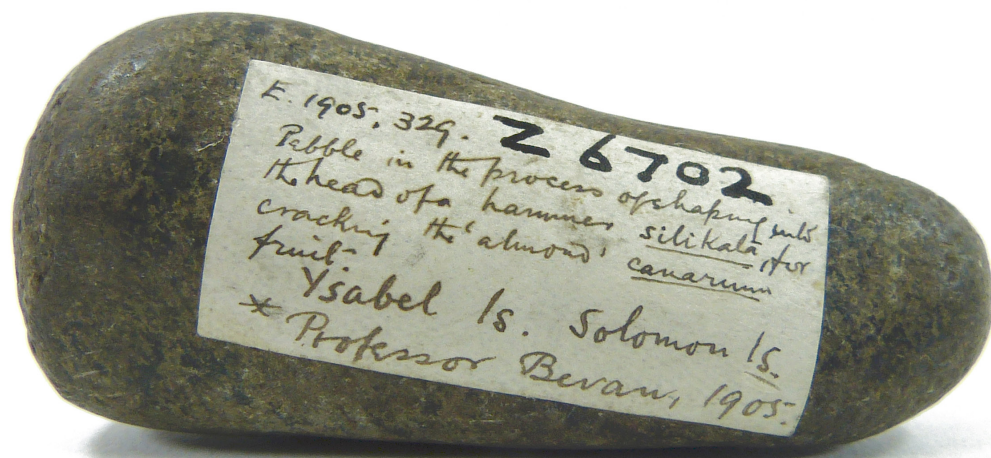 E. 1905. 329. Z 6702
Pebble in the process of shaping into
the head of a hammer silikata, for
cracking the 'almond' canarium
fruit
Ysabel Is. Solomon Is.
* Professor Bevan, 1905.